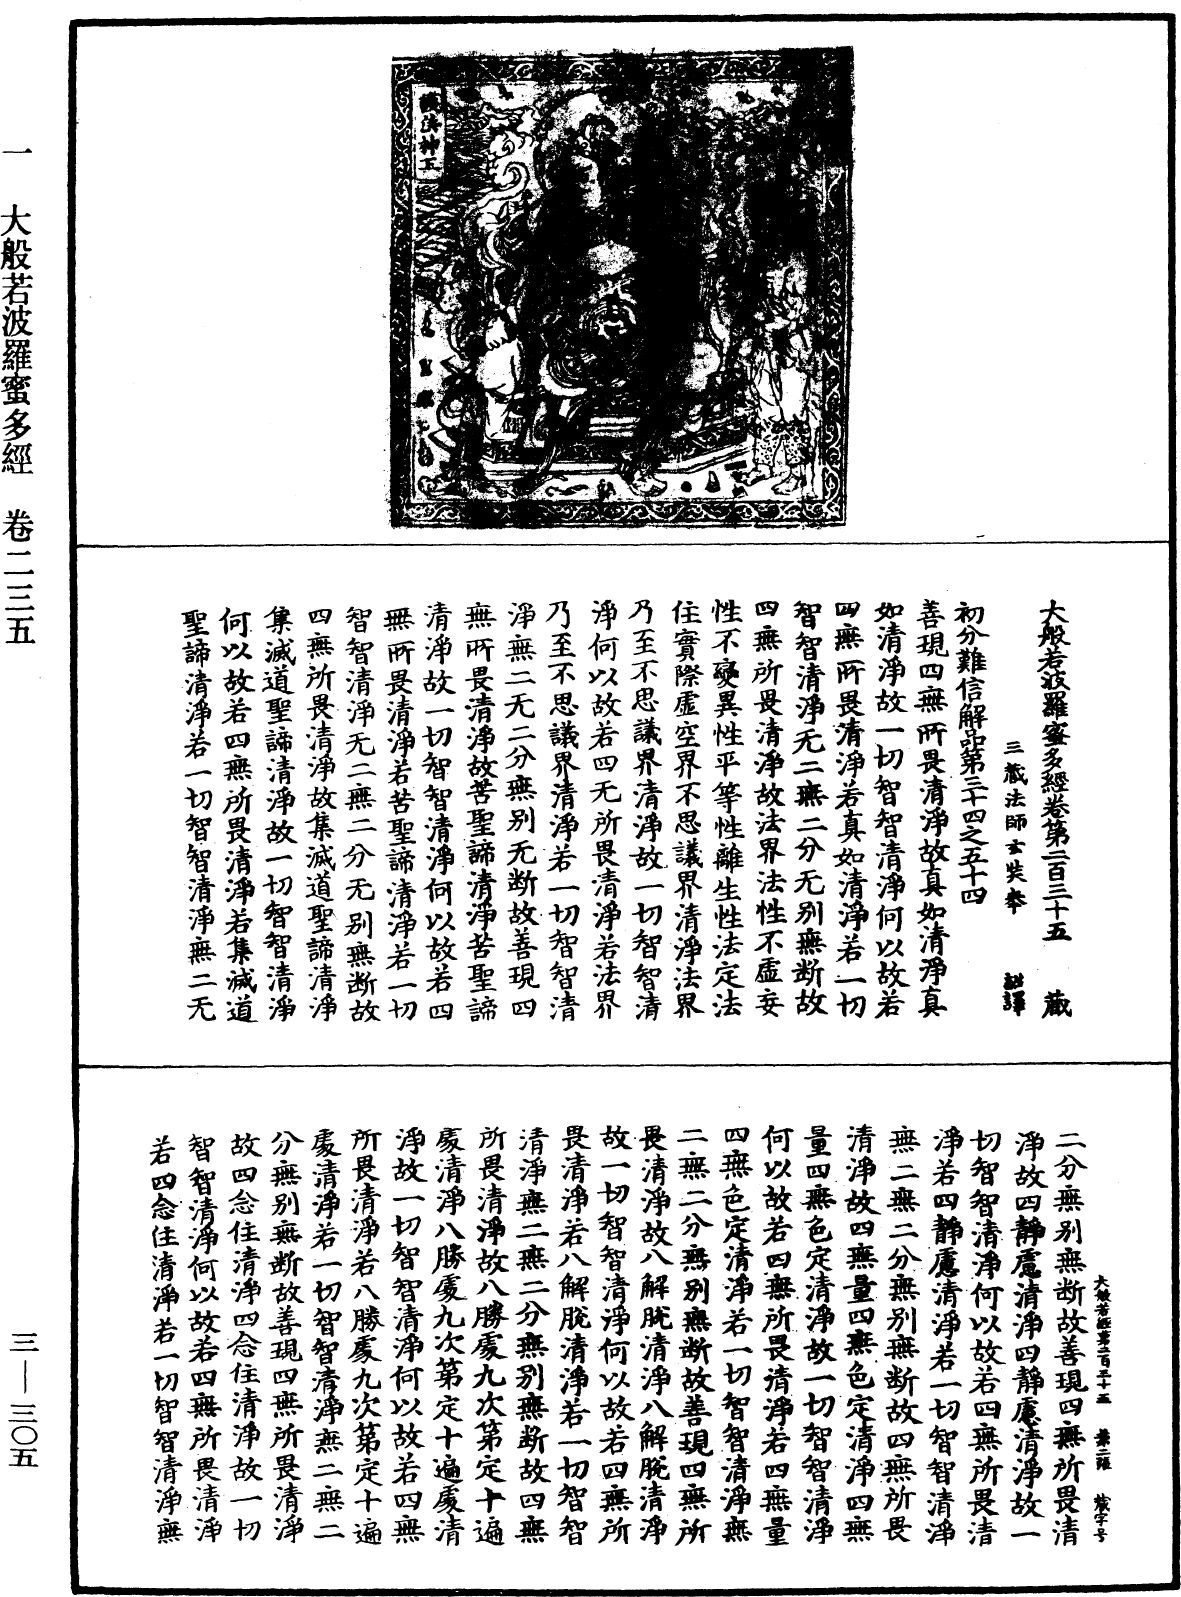 一 大般若波羅蜜多經 卷二三五
三—三〇五
護法神王
大般若波羅蜜多經卷第二百三十五 藏
三藏法師玄奘奉 詔譯
初分難信解品第三十四之五十四
善現四無所畏清淨故真如清淨真
如清淨故一切智智清淨何以故若
四無所畏清淨若真如清淨若一切
智智清淨无二無二分无別無断故
四無所畏清淨故法界法性不虛妄
性不變異性平等性離生性法定法
住實際虛空界不思議界清淨法界
乃至不思議界清淨故一切智智清
淨何以故若四无所畏清淨若法界
乃至不思議界清淨若一切智智清
淨無二无二分無別无断故善現四
無所畏清淨故苦聖諦清淨苦聖諦
清淨故一切智智清淨何以故若四
無所畏清淨若苦聖諦清淨若一切
智智清淨无二無二分无別無断故
四無所畏清淨故集滅道聖諦清淨
集滅道聖諦清淨故一切智智清淨
何以故若四無所畏清淨若集滅道
聖諦清淨若一切智智清淨無二无
大般若經第二百三十五 第二張 藏字号
二分無別無断故善現四無所畏清
淨故四靜慮清淨四靜慮清淨故一
切智智清淨何以故若四無所畏清
淨若四靜慮清淨若一切智智清淨
無二無二分無別無断故四無所畏
清淨故四無量四無色定清淨四無
量四無色定清淨故一切智智清淨
何以故若四無所畏清淨若四無量
四無色定清淨若一切智智清淨無
二無二分無別無断故善現四無所
畏清淨故八解脫清淨八解脫清淨
故一切智智清淨何以故若四無所
畏清淨若八解脫清淨若一切智智
清淨無二無二分無別無断故四無
所畏清淨故八勝處九次第定十遍
處清淨八勝處九次第定十遍處清
淨故一切智智清淨何以故若四無
所畏清淨若八勝處九次第定十遍
處清淨若一切智智清淨無二無二
分無別無断故善現四無所畏清淨
故四念住清淨四念住清淨故一切
智智清淨何以故若四無所畏清淨
若四念住清淨若一切智智清淨無